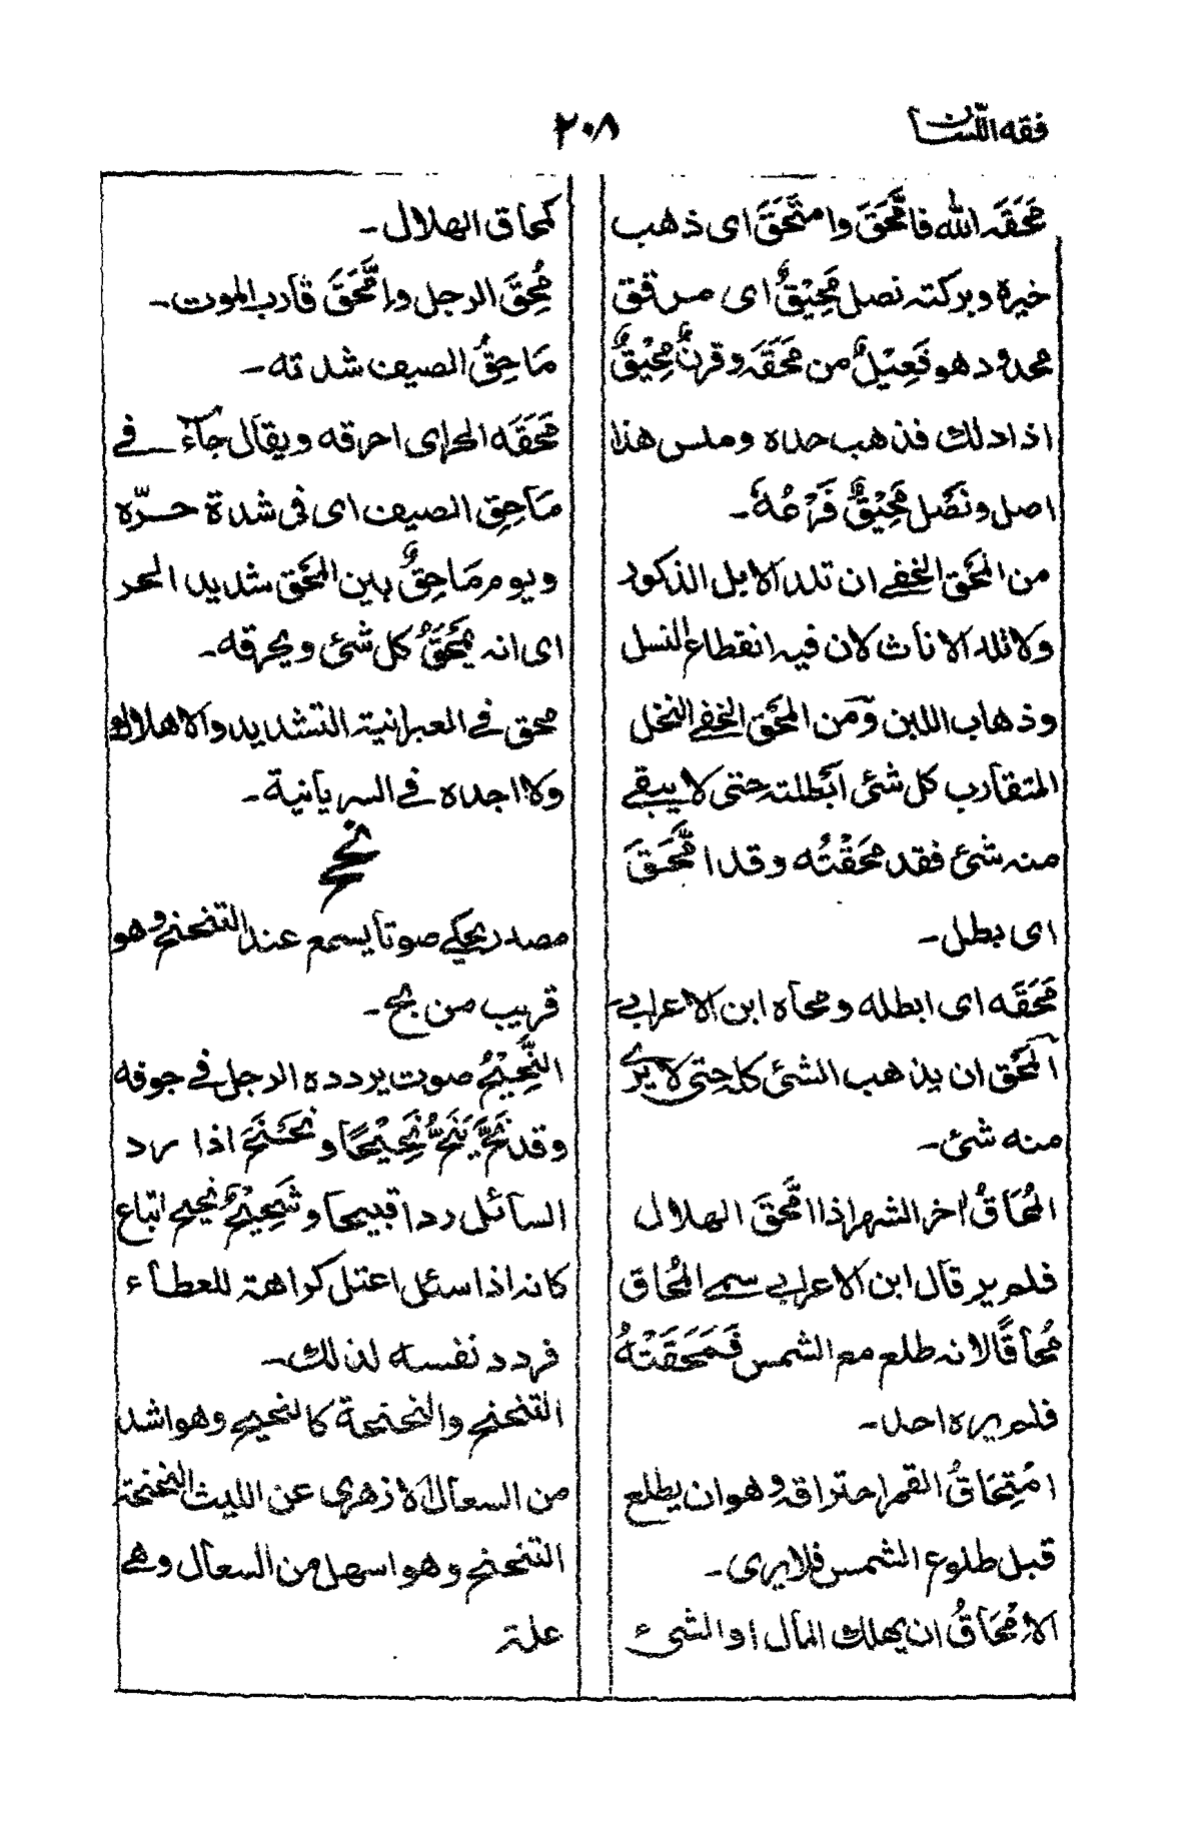 فقه اللسان
٢٠٨
مَحَقَہ اللّٰه فامَّحَقَ وامتَحَقَ ای ذهب
خیرہ و برکتہ نصل مَحِیْقٌ ای مرقق
محدود هو فَعِیْلٌ من مَحَقَہ و قرنٌ مَحِیْقٌ
اذا دلك فذهب حده وملس هذا
اصل ونَصْل مَحِیْقٌ فَرْعُهٗ۔
من المَحْق الخفے ان تلد الابل الذکور
ولاتلد الاناث لان فیہ انقطاع النسل
وذهاب اللبن ومن المَحْق الخفے النخل
المتقارب کل شئ ابطلتہ حتی لا یبقے
منہ شئ فقد مَحَقْتُه وقد امَّحَقَ
ای بطل۔
مَحَقَه ای ابطله ومحاه ابن الاعرابی
المَحْق ان یذهب الشئ کلہ حتی لا یرٰے
منه شئ۔
المُحَاقُ اٰخر الشهر اذا امَّحَقَ الهلال
فلم یر قال ابن الاعرابی سمے المُحاق
مُحاقًا لانہ طلع مع الشمس فَمَحَقَتْهُ
فلم یره احد۔
امْتِحَاقُ القمر احتراقہ وهو ان یطلع
قبل طلوع الشمس فلا یری۔
الاِمْحَاقُ ان یهلك المال او الشئ
کمحاق الهلال۔
مُحِقَ الرجل وامَّحَقَ قارب الموت۔
مَاحِقُ الصیف شدته۔
مَحَقَه الحر ای احرقه ویقال جاء فے
مَاحِقِ الصیف ای فی شدة حرّه
ویوم مَاحِقٌ بین المَحْق شدید الحر
ای انہ یَمْحَقُ کل شئ ویحرقه۔
محق فے العبرانیة التشدید والاهلاك
ولا اجده فے السریانیة۔
نح
مصدر یحکے صوتا یسمع عند التنحنح وهو
قریب من بح۔
النَّحِیْحُ صوت یردده الرجل فے جوفه
وقد نَحَّ یَنَحُّ نَحِیْحًا ونَحْنَحَ اذا رد
السائل ردا قبیحا وشَحِیْحٌ نحیح اتباع
کانہ اذا سئل اعتل کراهة للعطاء
فردد نفسه لذلك۔
التنحنح والنحنحة کالنحیح وهو اشد
من السعال الازهری عن اللیث النحنحة
التنحنح وهو اسهل من السعال وهے
علة